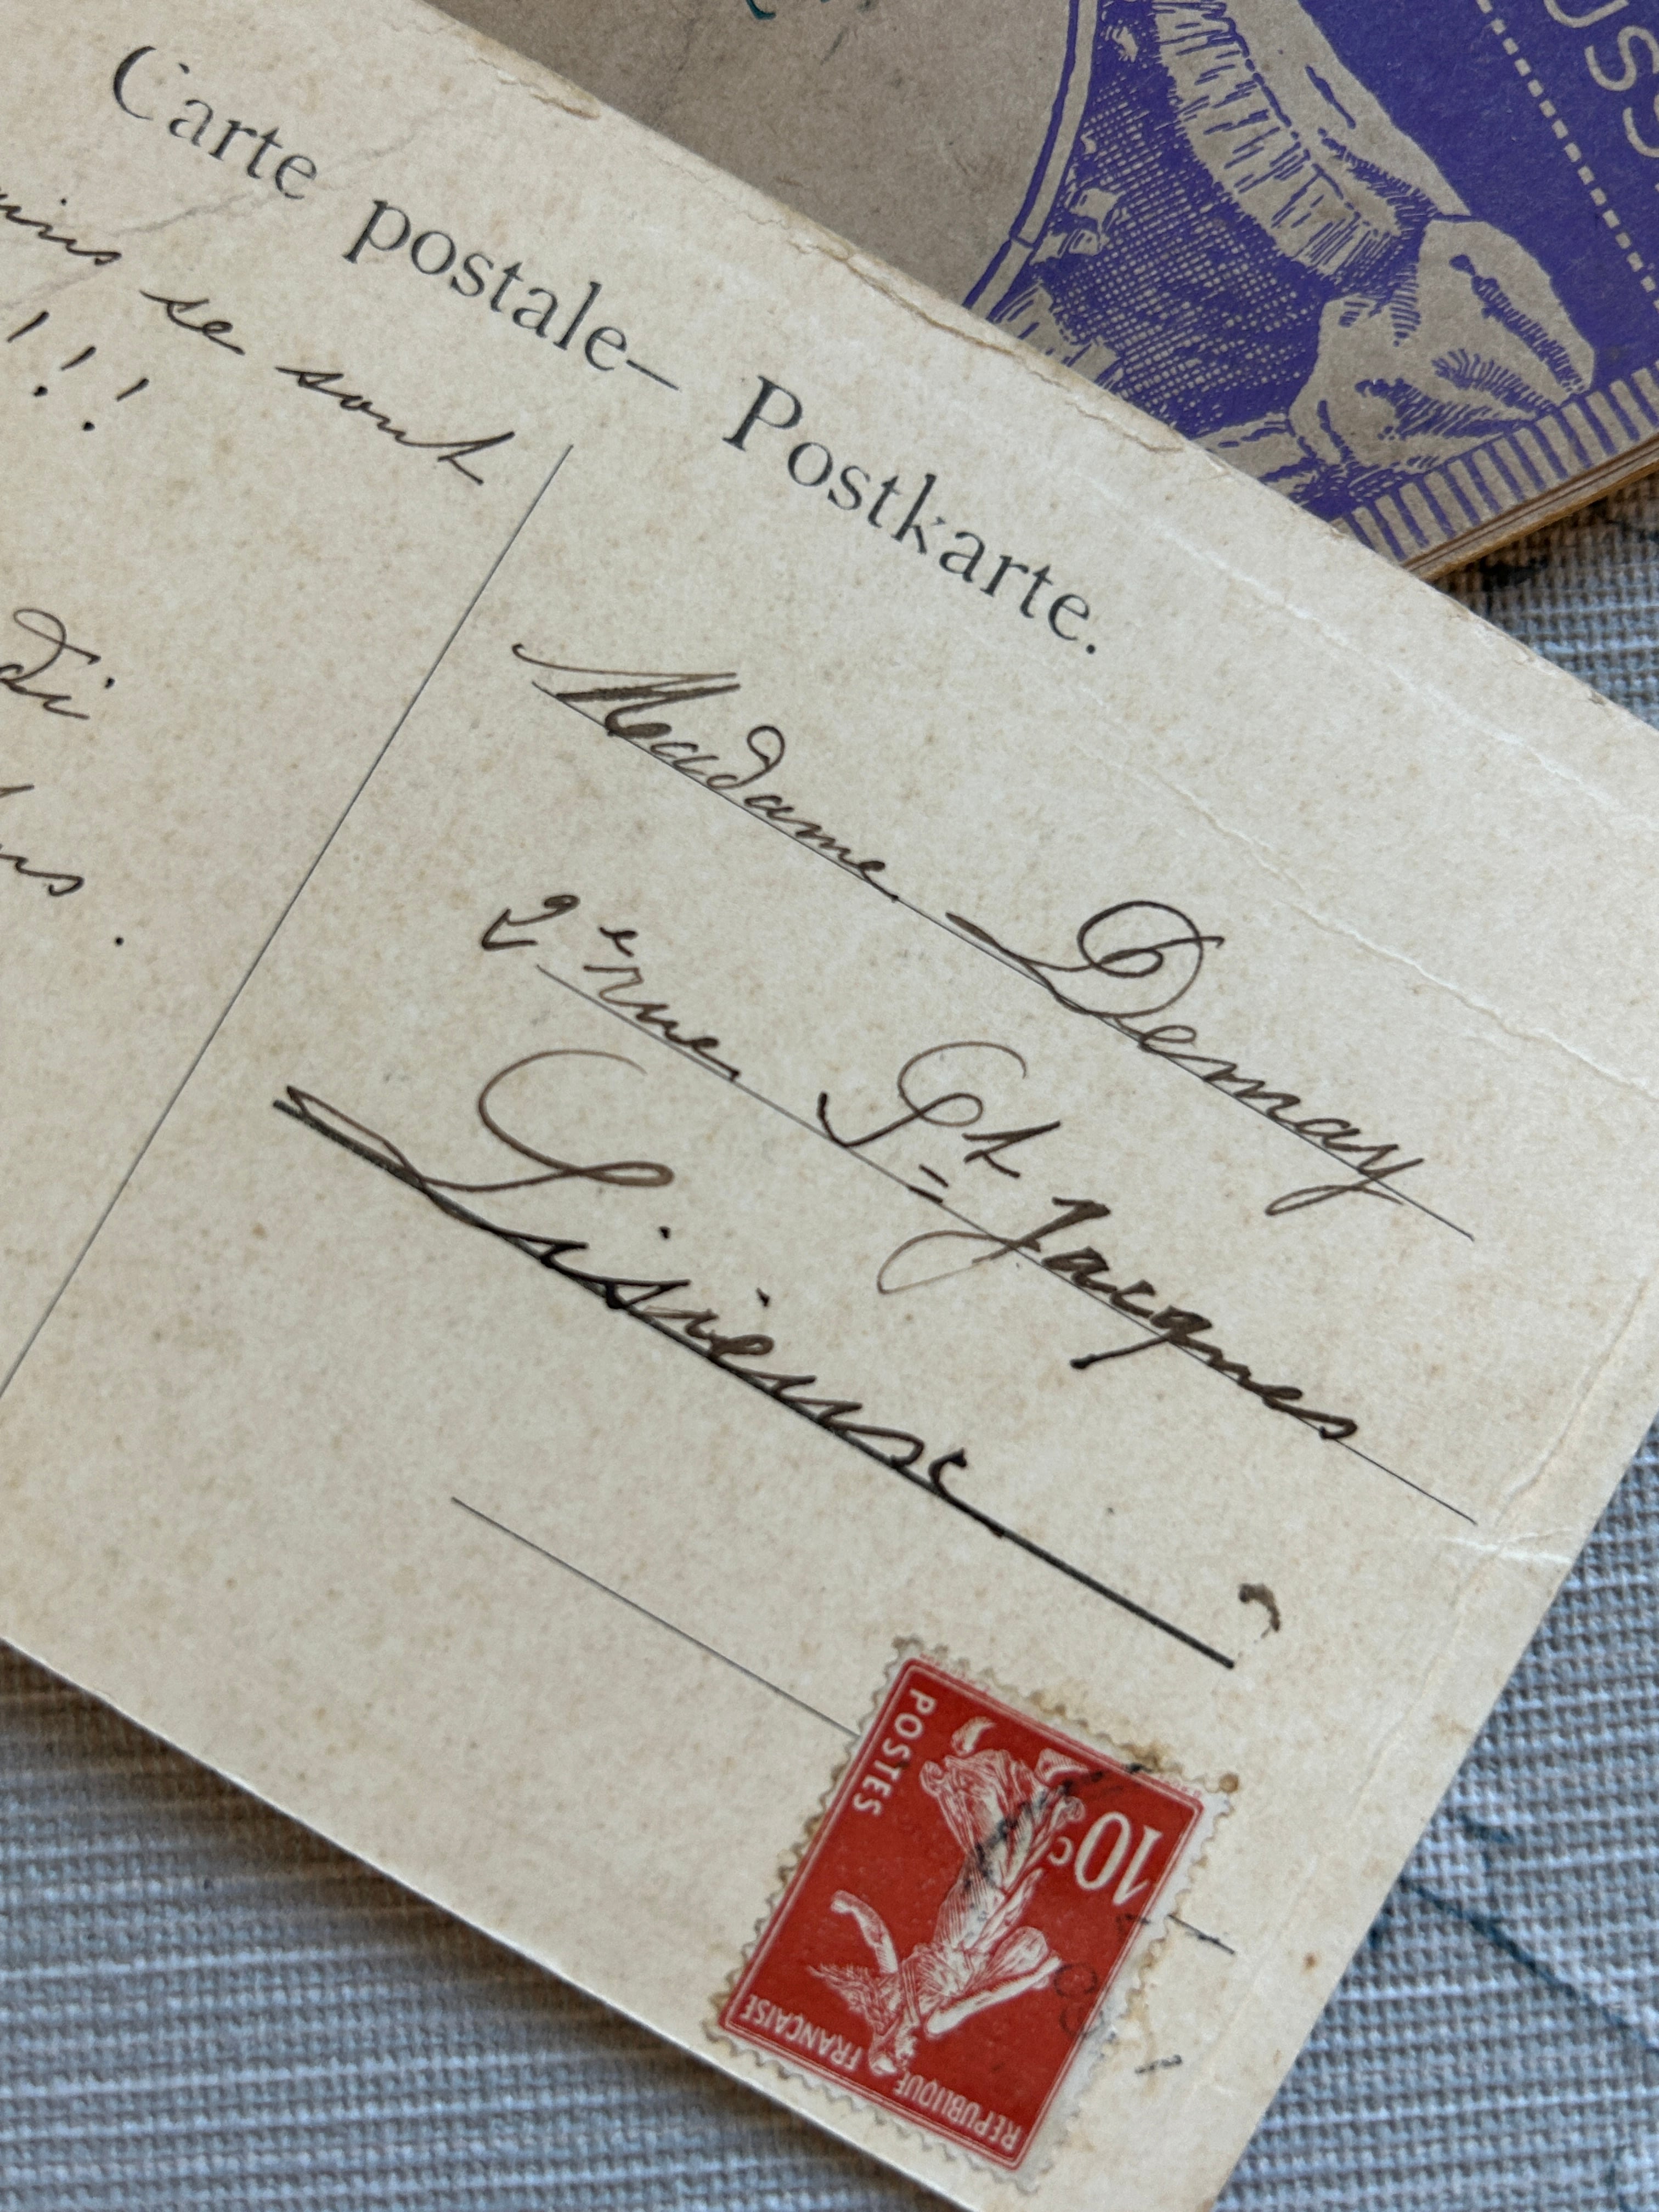 Carte postale – Postkarte.
se sont
!!!
di
Madame Demay
2 rue St Jacques
Lisieux
POSTES
10c
REPUBLIQUE FRANÇAISE